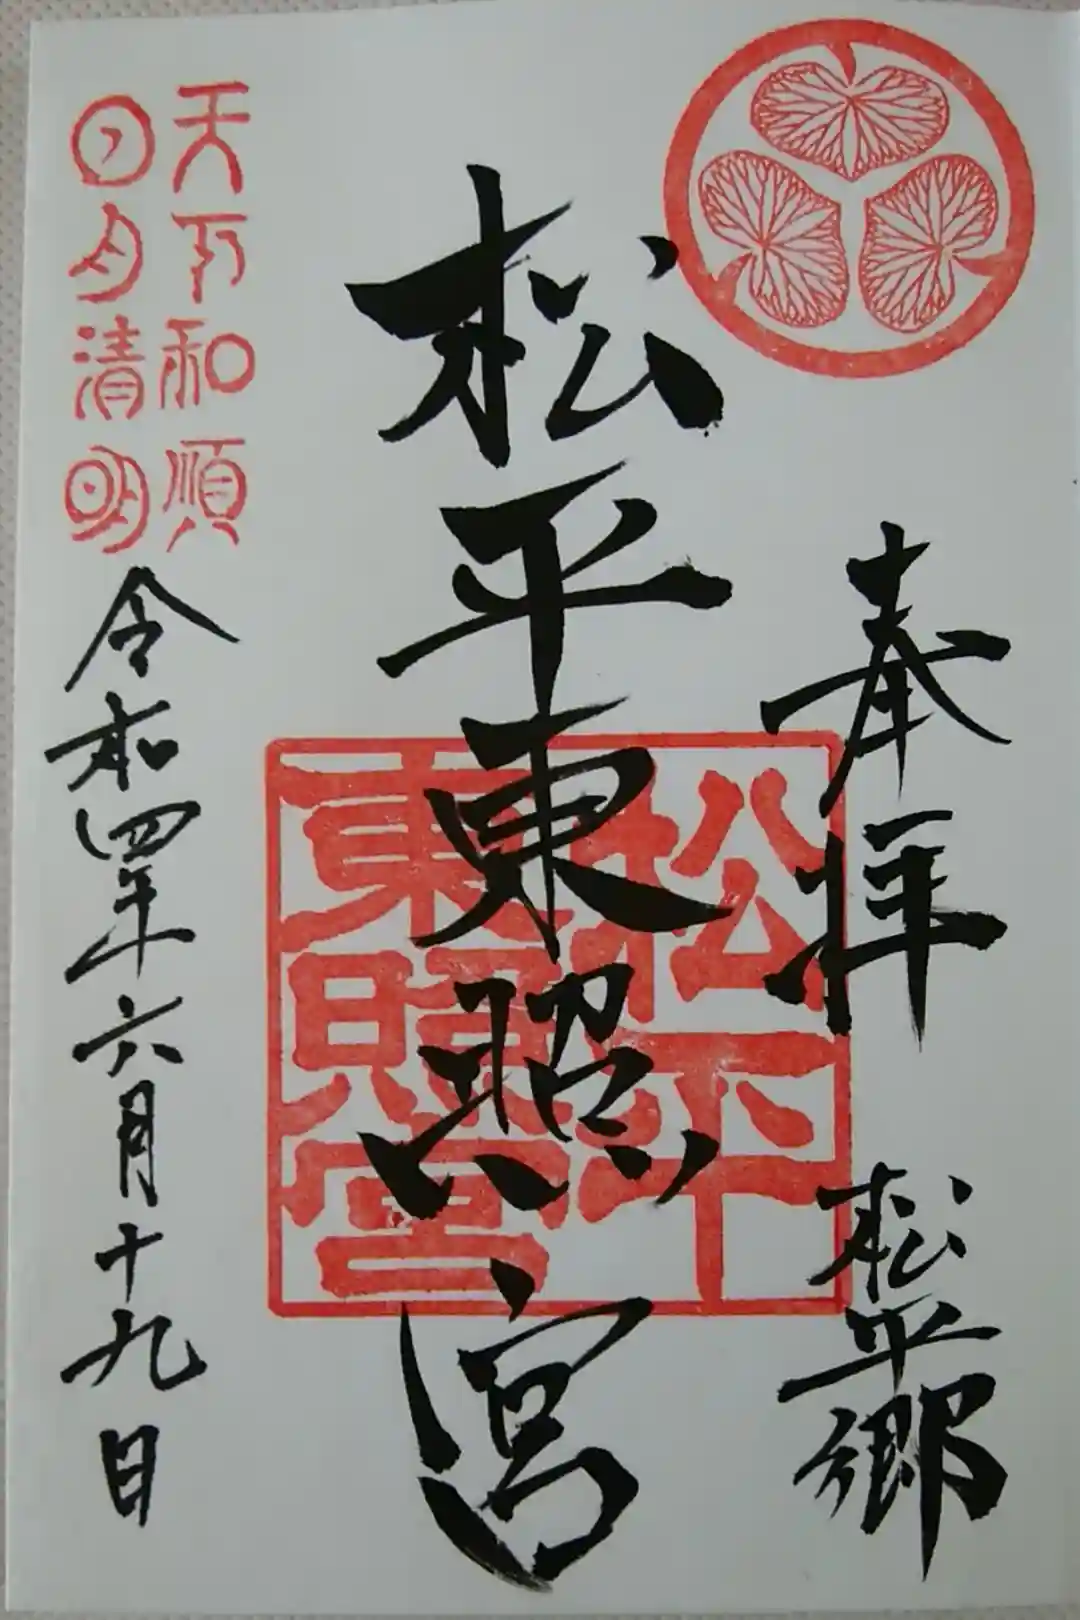 奉拝
松平郷
松平東照宮
松平
東照宮
天下和順
日月清明
令和四年六月十九日